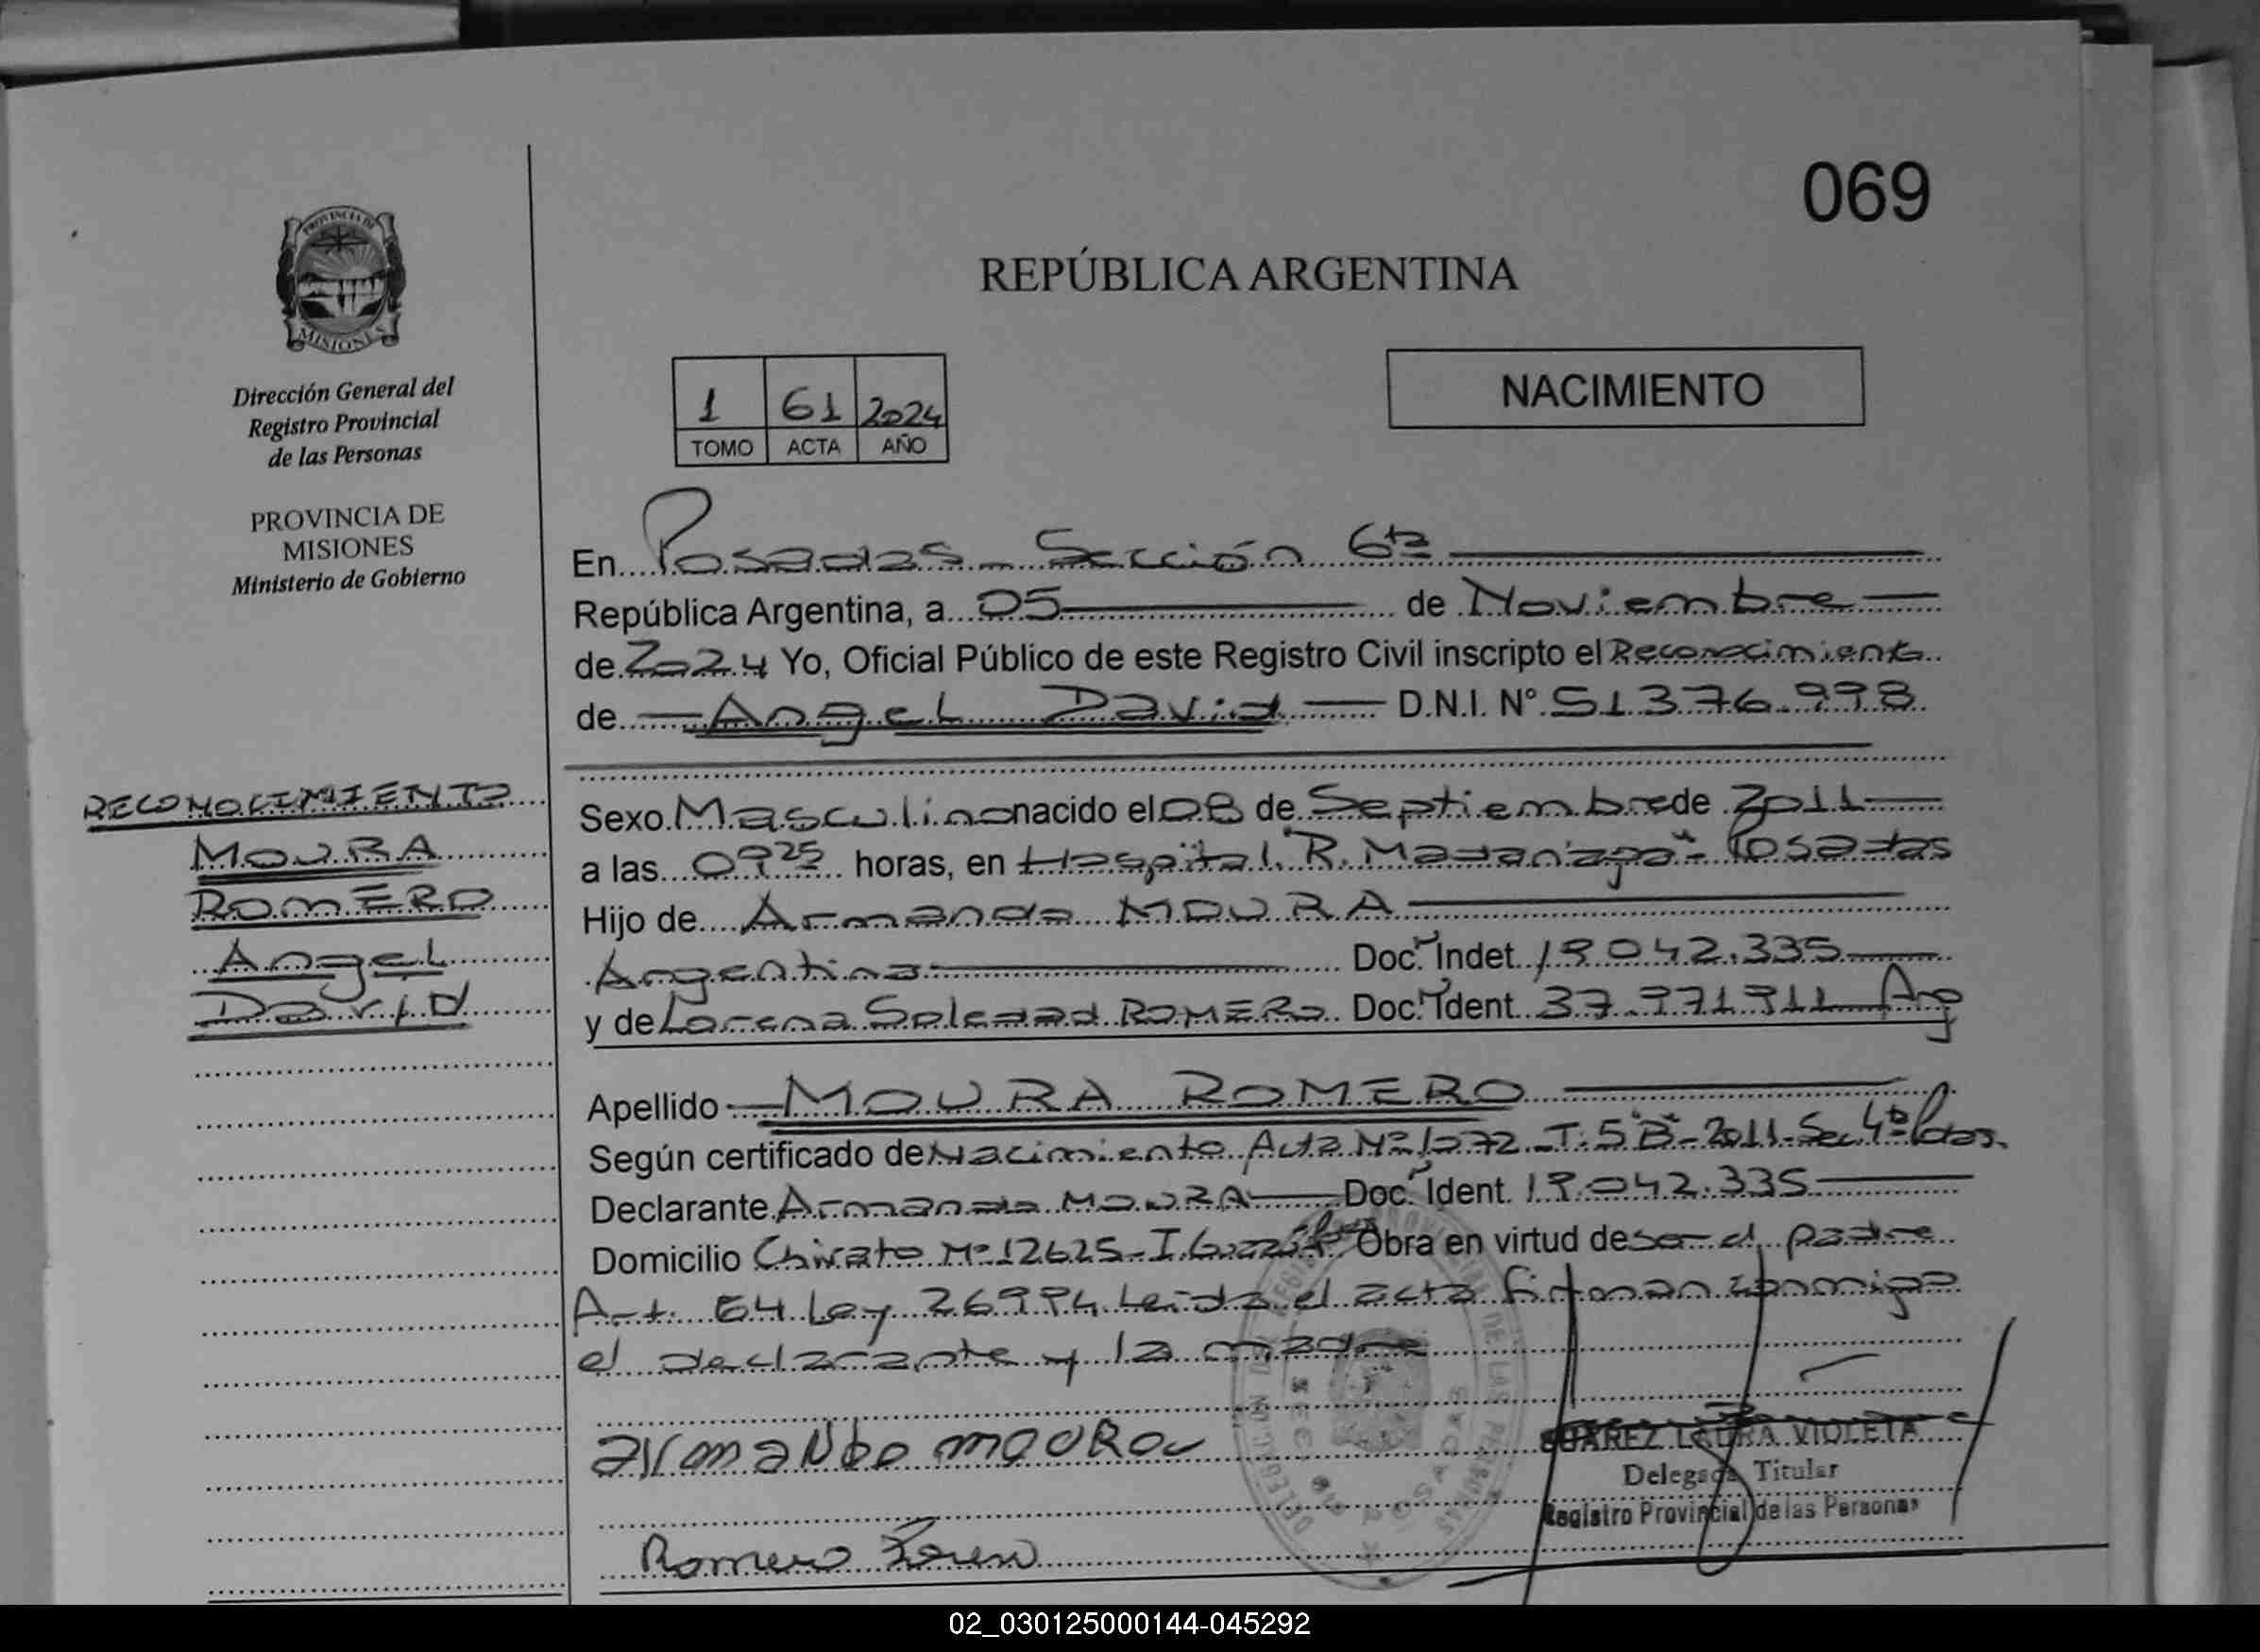 069
PROVINCIA DE
MISIONES
REPÚBLICA ARGENTINA
Dirección General del
Registro Provincial
de las Personas
PROVINCIA DE
MISIONES
Ministerio de Gobierno
1 61 2024
TOMO ACTA AÑO
NACIMIENTO
En Posadas - Sección 6ta
República Argentina, a 05 de Noviembre
de 2024 Yo, Oficial Público de este Registro Civil inscripto el Reconocimiento
de Angel David D.N.I. N° 51.376.998
RECONOCIMIENTO
MOURA
ROMERO
Angel
David
Sexo Masculino nacido el 08 de Septiembre de 2011
a las 09 25 horas, en Hospital R. Madariaga - Posadas
Hijo de Armando MOURA
Argentino Doc. Indet. 19.042.335
y de Lorena Soledad ROMERO Doc. Ident. 37.971911 Arg
Apellido MOURA ROMERO
Según certificado de Nacimiento Acta Nº 1072 - T: 5°"B" - 2011 - Sec 4ta Pdas.
Declarante Armando MOURA Doc. Ident. 19.042.335
Domicilio Nº 12625 - Obra en virtud de ser el padre
Art. 64 Ley 26994 Leida el acta firman conmigo
el declarante y la madre
armando moura
SUAREZ LAURA VIOLETA
Delegada Titular
Registro Provincial de las Personas
Romero Loren
02_030125000144-045292